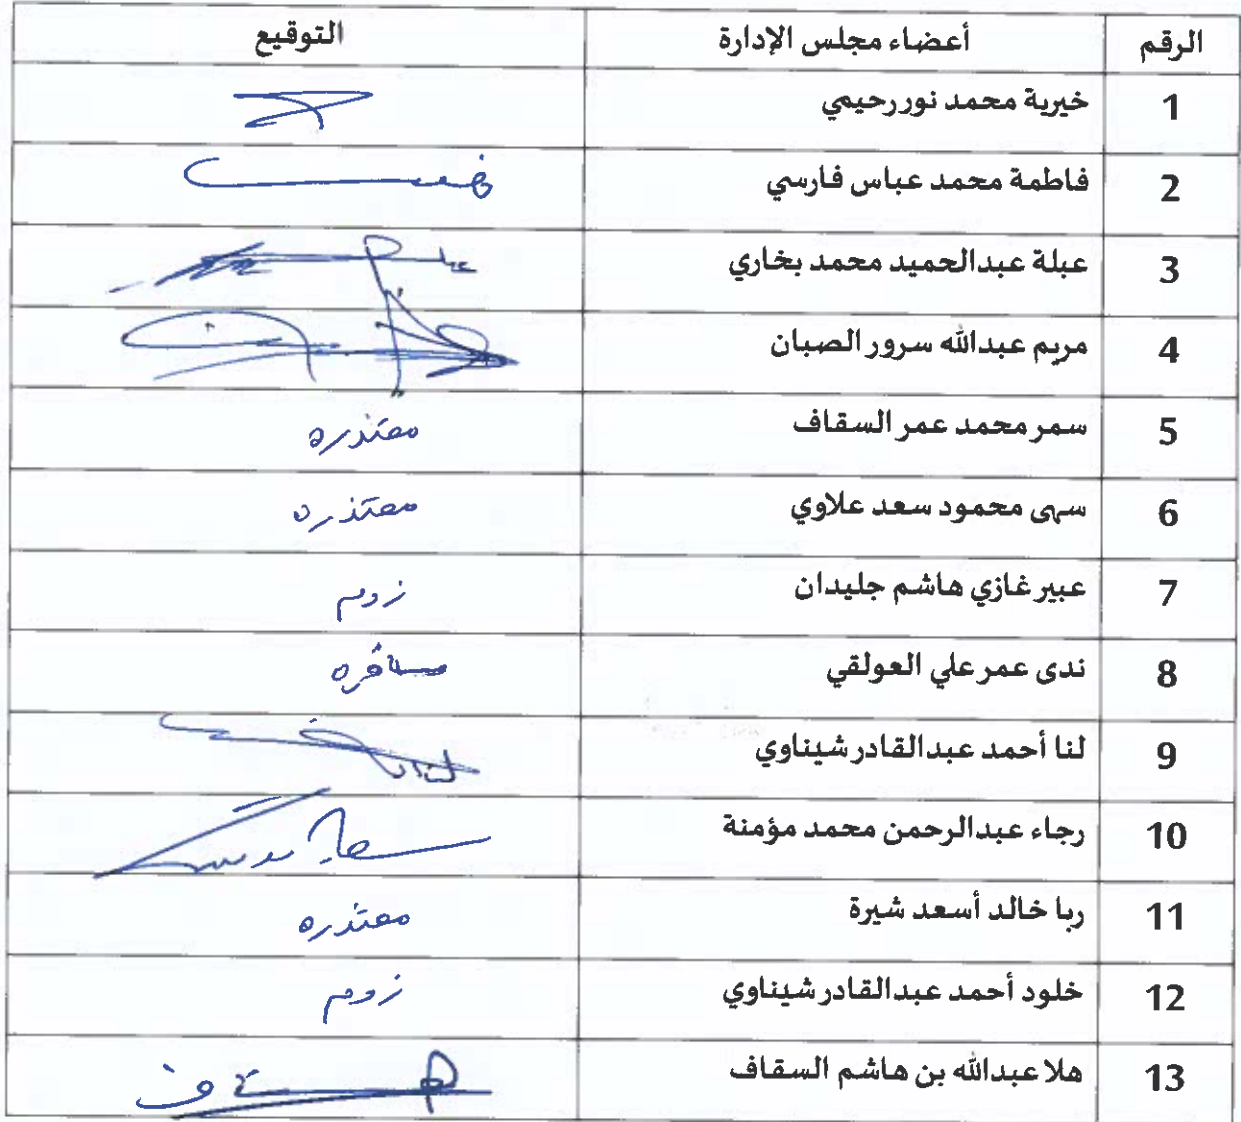 الرقم أعضاء مجلس الإدارة التوقيع
1 خيرية محمد نور رحيمي
2 فاطمة محمد عباس فارسي
3 عبلة عبدالحميد محمد بخاري
4 مريم عبدالله سرور الصبان
5 سمر محمد عمر السقاف معتذره
6 سهى محمود سعد علاوي معتذره
7 عبير غازي هاشم جليدان زووم
8 ندى عمر علي العولقي مسافره
9 لنا أحمد عبدالقادر شيناوي
10 رجاء عبدالرحمن محمد مؤمنة
11 ربا خالد أسعد شيرة معتذره
12 خلود أحمد عبدالقادر شيناوي زووم
13 هلا عبدالله بن هاشم السقاف